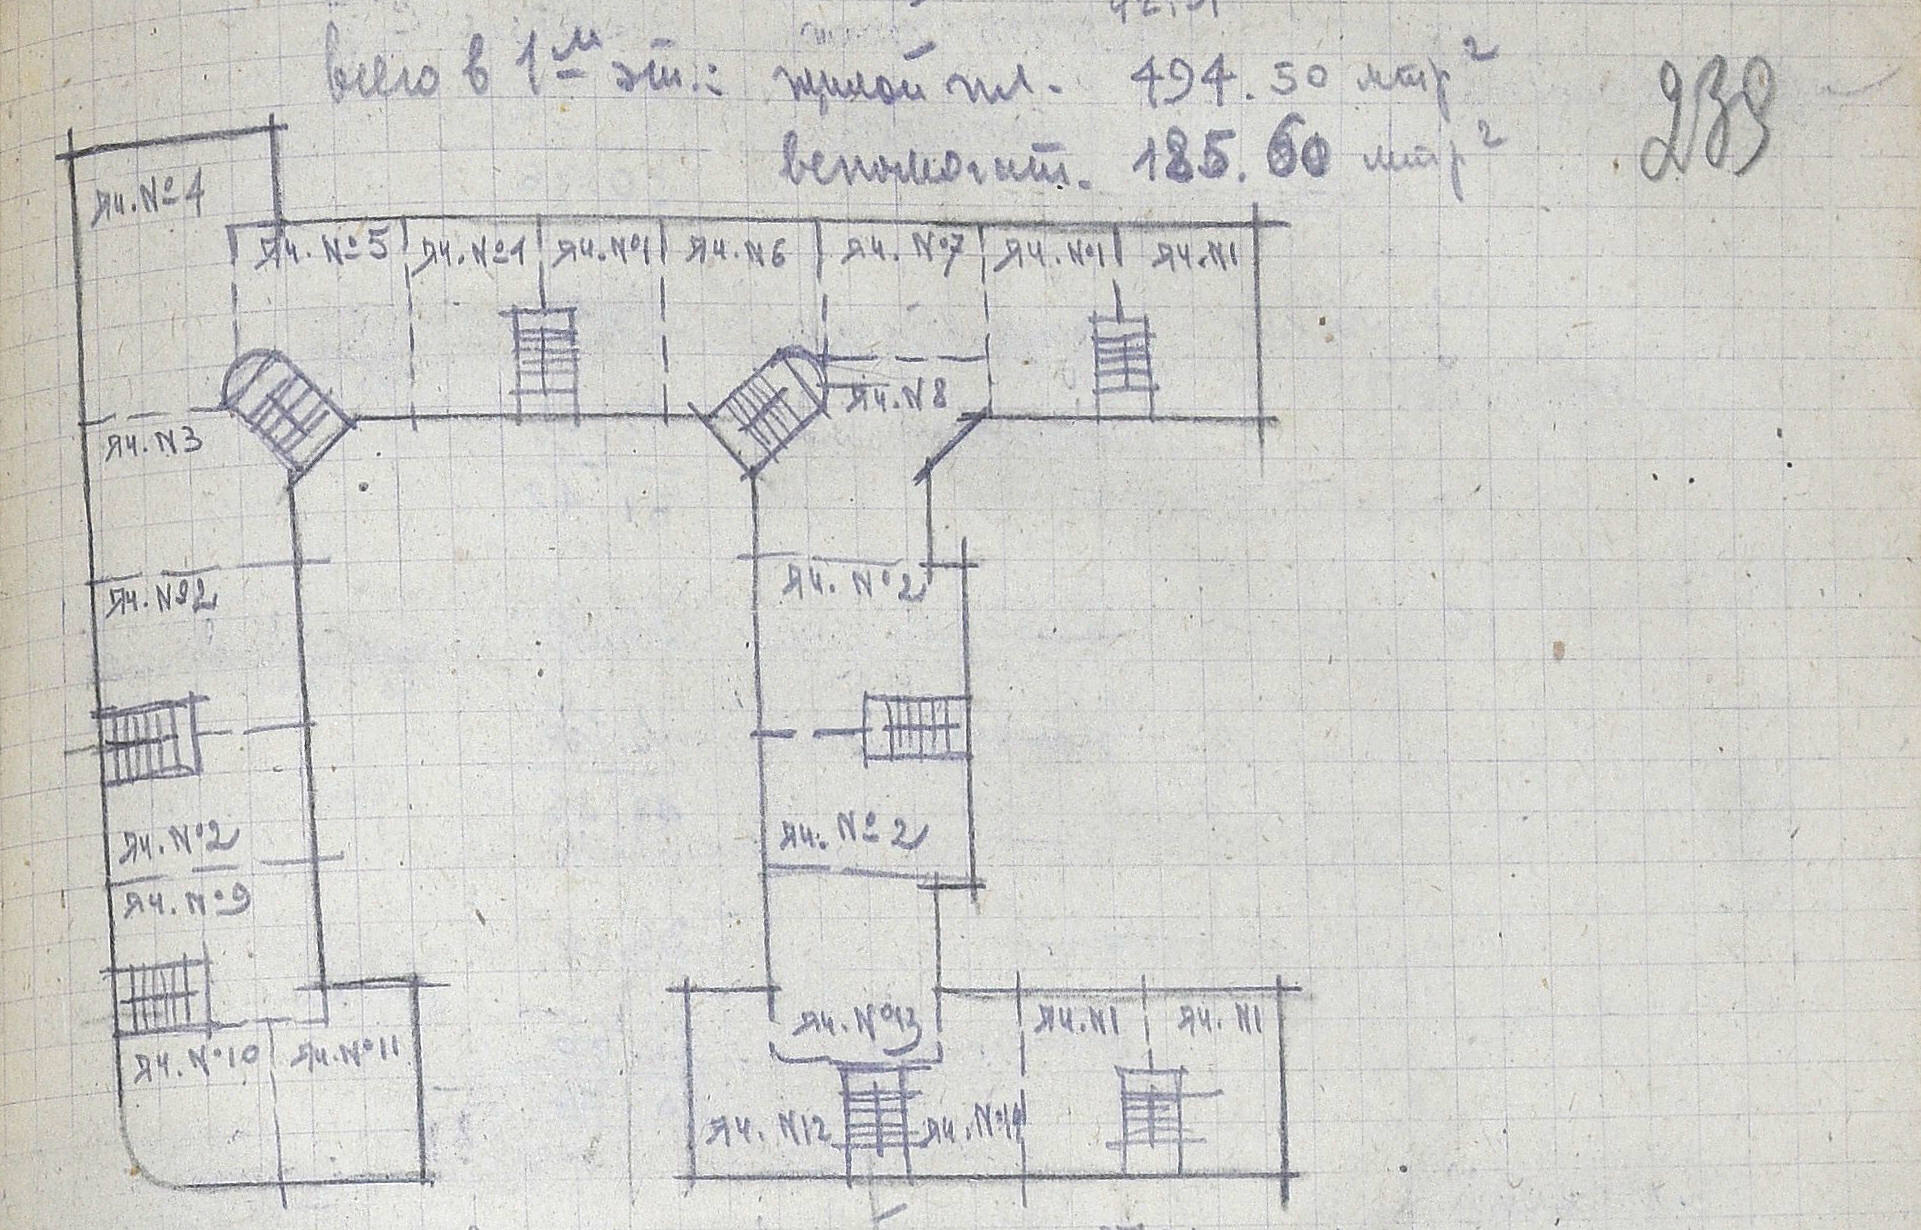 всего в 1м эт.: жилой пл. 494.50 мтр²
239
вспомогат. 185.60 мтр²
Яч. №4
Яч. №5
Яч. №1
Яч. №1
Яч. №6
Яч. №7
Яч. №1
Яч. №1
Яч. №8
Яч. №3
Яч. №2
Яч. №2
Яч. №2
Яч. №2
Яч. №9
Яч. №13
Яч. №1
Яч. №1
Яч. №10
Яч. №11
Яч. №12
Яч. №14